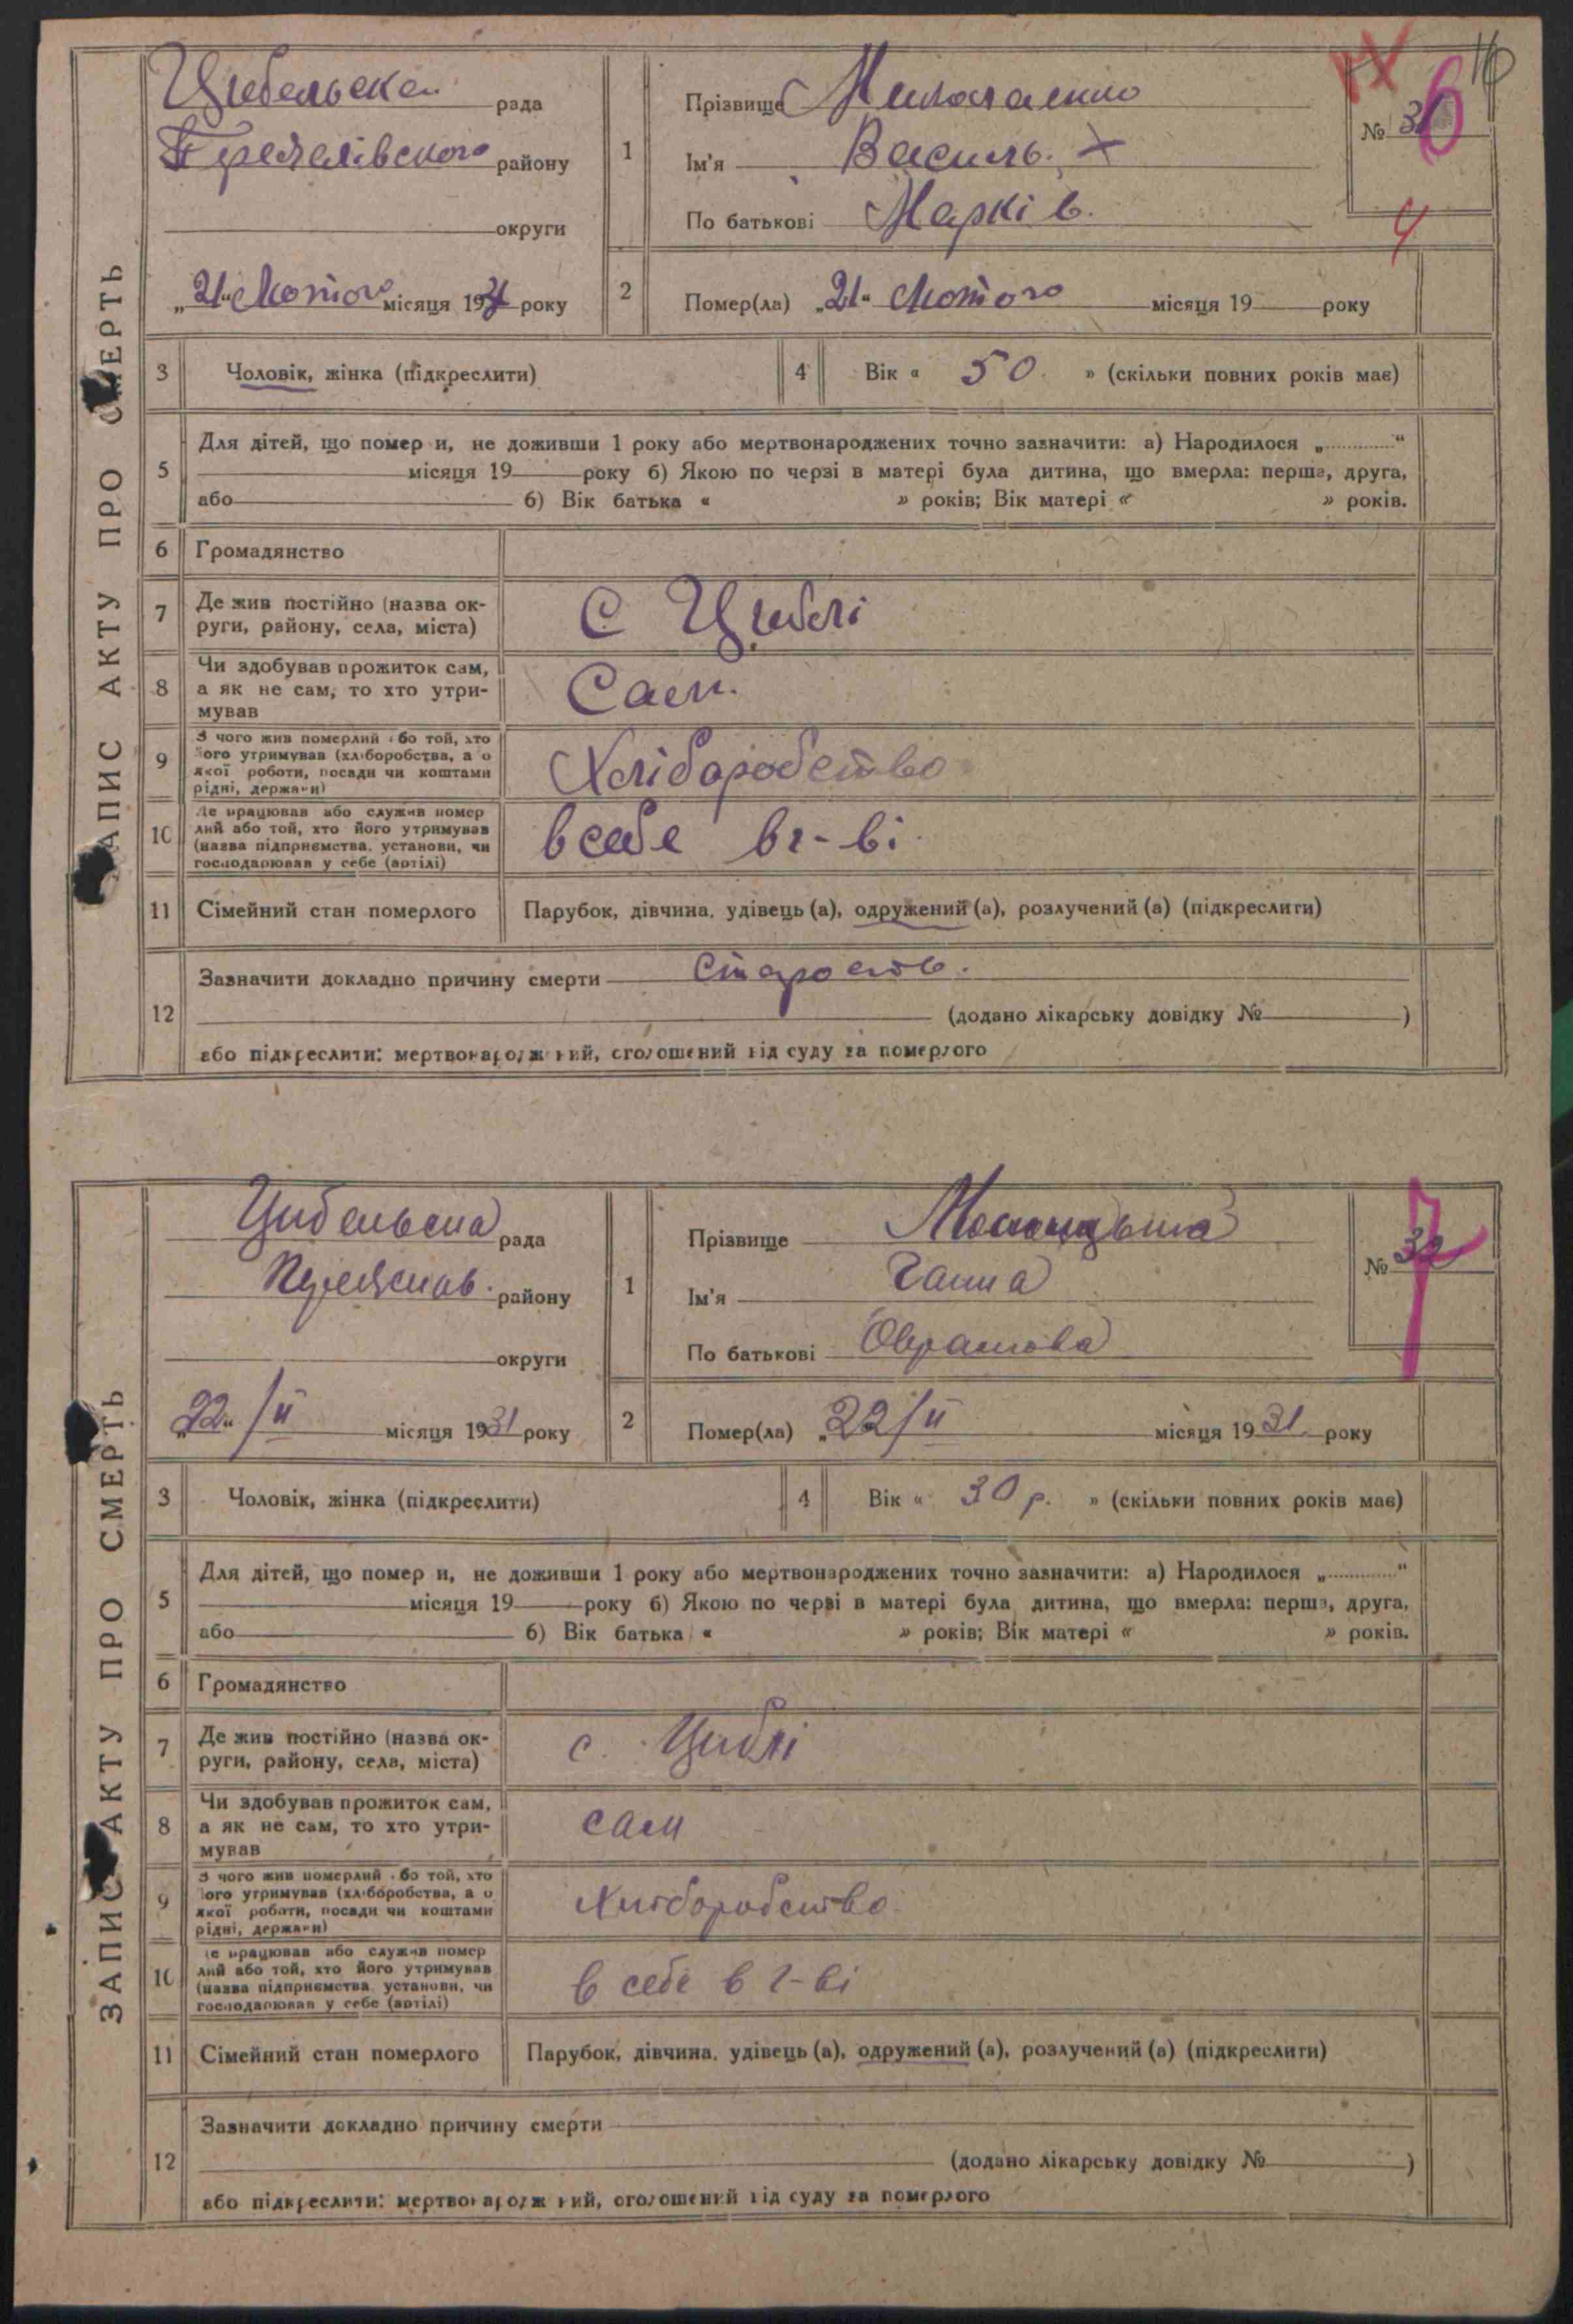 16
ЗАПИС АКТУ ПРО СМЕРТЬ
Цибельска рада
району
округи
„21“ Лютого місяця 1931 року
1
Прізвище Миколаенко
Ім'я Василь. Х
По батькові Марків.
№ 31
6
4
2
Помер(ла) „21“ Лютого місяця 19 року
3
Чоловік, жінка (підкреслити)
4
Вік « 50. » (скільки повних років має)
5
Для дітей, що помер и, не доживши 1 року або мертвонароджених точно зазначити: а) Народилося „ “
місяця 19 року б) Якою по черзі в матері була дитина, що вмерла: перша, друга,
або б) Вік батька « » років; Вік матері « » років.
6
Громадянство
7
Де жив постійно (назва ок-
руги, району, села, міста)
С Циблі
8
Чи здобував прожиток сам,
а як не сам, то хто утри-
мував
Сам.
9
З чого жив померлий бо той, хто
ого утримував (хл боробства, а о
якої роботи, посади чи коштами
рідні, держави)
Хліборобство
10
Де працював або служив помер
лий або той, хто його утримував
(назва підприємства, установи, чи
господарював у себе (артілі)
в себе в г-ві.
11
Сімейний стан померлого
Парубок, дівчина, удівець (а), одружений (а), розлучений (а) (підкреслити)
12
Зазначити докладно причину смерти Старость.
(додано лікарську довідку № )
або підкреслити: мертвонароджений, оголошений від суду за померлого
ЗАПИС АКТУ ПРО СМЕРТЬ
Цибельска рада
району
округи
„22“/II місяця 1931 року
1
Прізвище
Ім'я Ганна
По батькові
№ 32
7
2
Помер(ла) „22/II місяця 1931 року
3
Чоловік, жінка (підкреслити)
4
Вік « 30 р. » (скільки повних років має)
5
Для дітей, що помер и, не доживши 1 року або мертвонароджених точно зазначити: а) Народилося „ “
місяця 19 року б) Якою по черзі в матері була дитина, що вмерла: перша, друга,
або б) Вік батька « » років; Вік матері « » років.
6
Громадянство
7
Де жив постійно (назва ок-
руги, району, села, міста)
с. Циблі
8
Чи здобував прожиток сам,
а як не сам, то хто утри-
мував
сам
9
З чого жив померлий бо той, хто
ого утримував (хл боробства, а о
якої роботи, посади чи коштами
рідні, держави)
Хліборобство.
10
Де працював або служив помер
лий або той, хто його утримував
(назва підприємства, установи, чи
господарював у себе (артілі)
в себе в г-ві
11
Сімейний стан померлого
Парубок, дівчина, удівець (а), одружений (а), розлучений (а) (підкреслити)
12
Зазначити докладно причину смерти
(додано лікарську довідку № )
або підкреслити: мертвонароджений, оголошений від суду за померлого